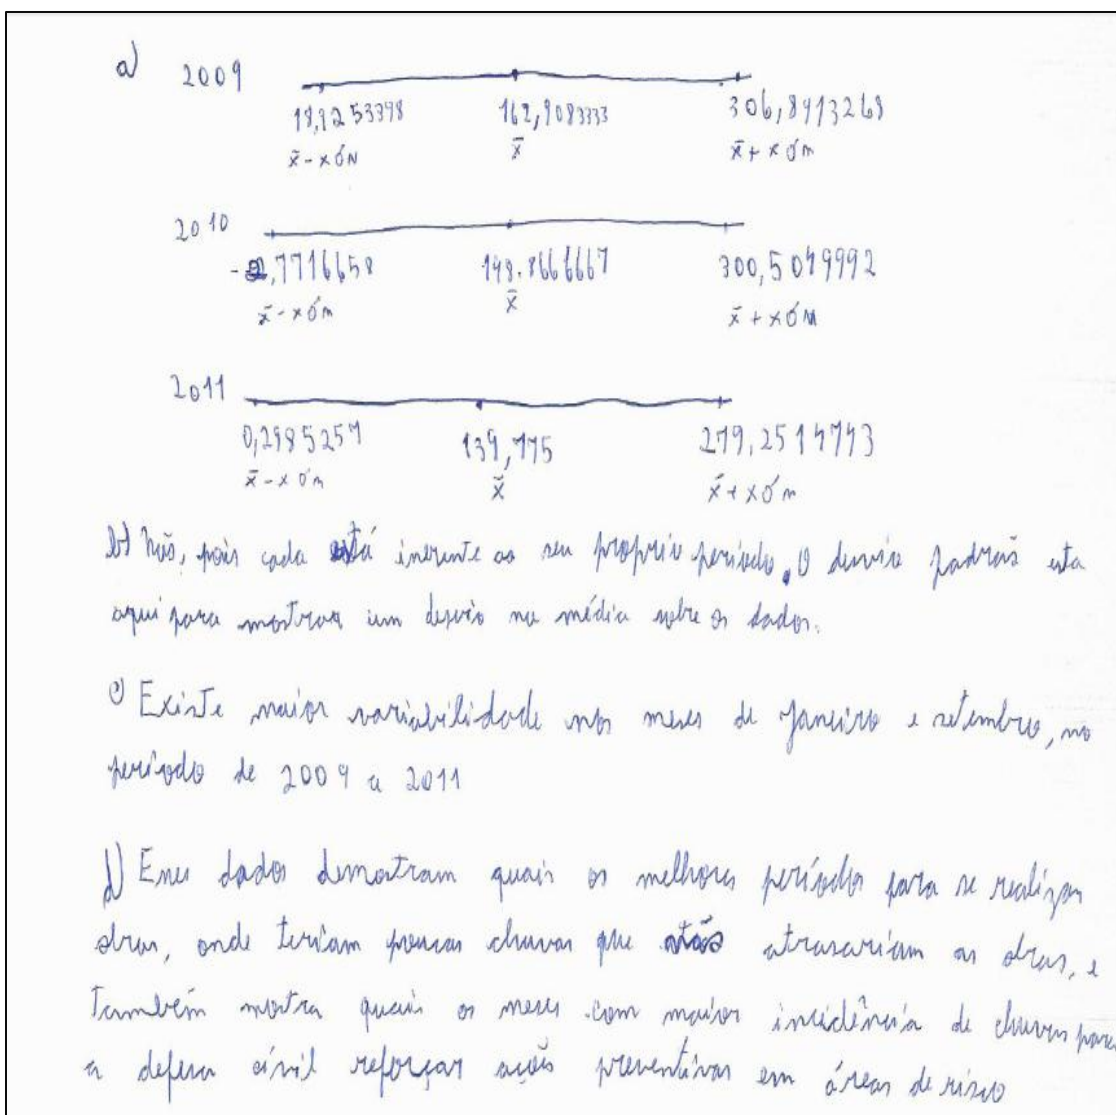 a) 2009
18,9253398 162,9083333 306,8913268
x̄ - xσn x̄ x̄ + xσn
2010
-2,7716658 148.8666667 300,5049992
x̄ - xσn x̄ x̄ + xσn
2011
0,2985257 139,775 279,2514743
x̄ - xσn x̄ x̄ + xσn
b) Não, pois cada está inerente ao seu proprio período. O desvio padrão esta
aqui para mostrar um desvio na média sobre os dados.
c) Existe maior variabilidade nos meses de janeiro e setembro, no
período de 2009 a 2011
d) Esses dados demostram quais os melhores períodos para se realizar
obras, onde teriam poucas chuvas que atrasariam as obras, e
também mostra quais os meses com maior incidência de chuvas para
a defesa civil reforçar ações preventivas em áreas de risco